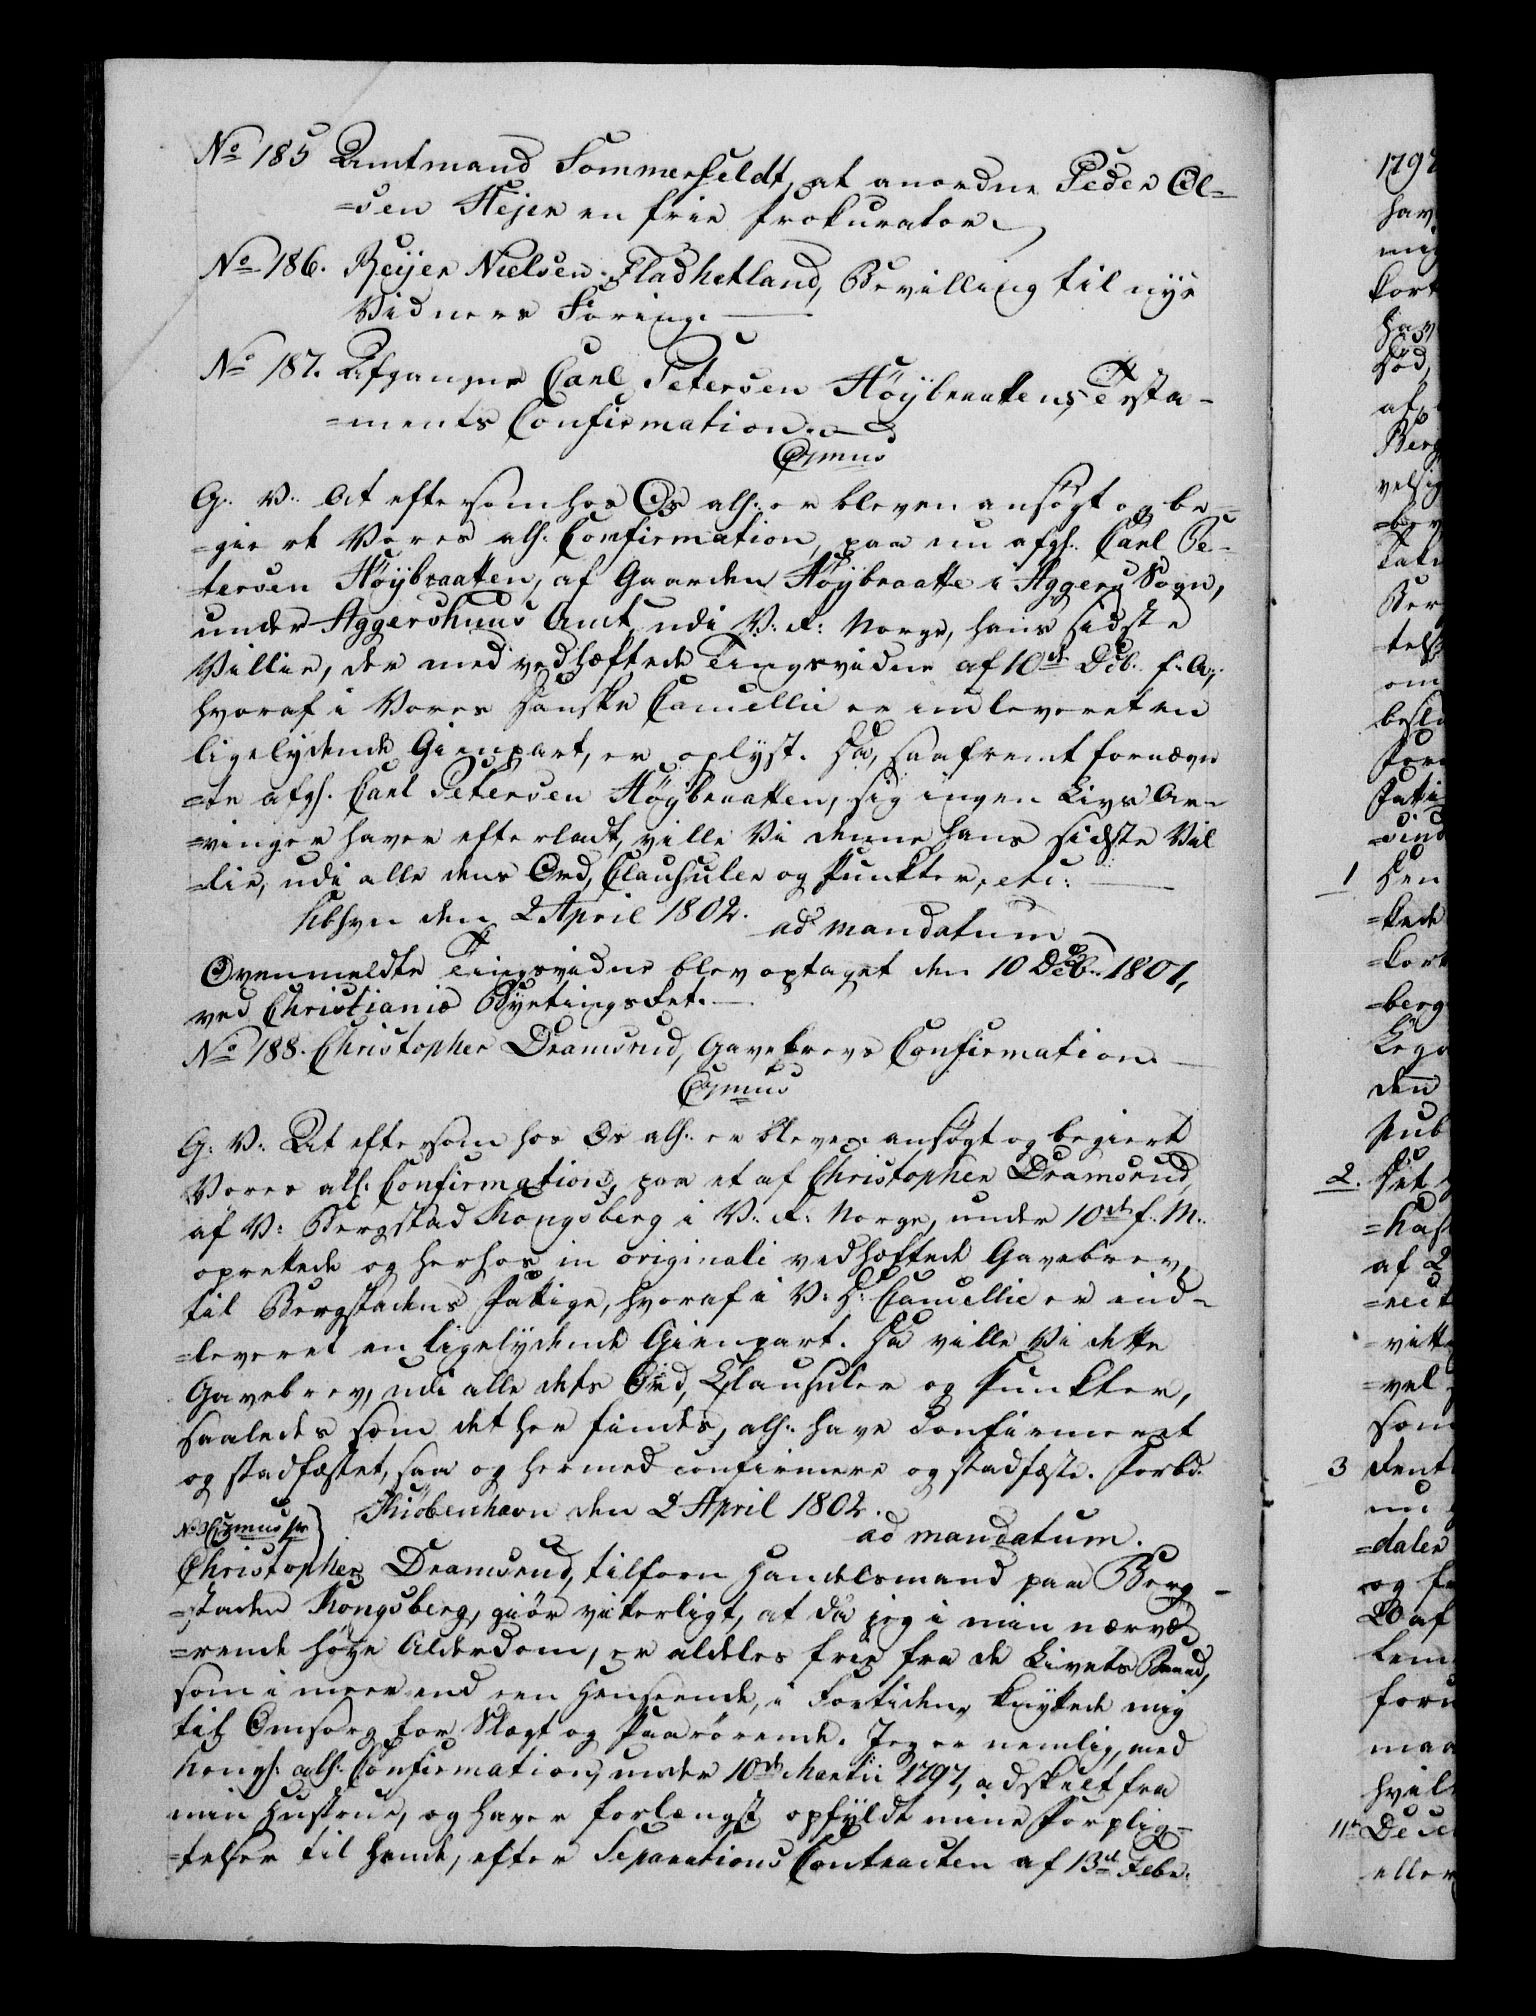 No 185 Amtmand Sommerfeldt, at anordne Peder Ol-
=sen Hejer en frie Prokurator
No 186. Reijer Nielsen Fladhetland, Bevilling til nye
Vidners Føring.
No 187. Afgangne Carl Petersen Høybraatens Testa-
=ments Confirmation.
Cgmus
G. V. At eftersom hos Os alh: er bleven ansøgt og be-
=giert Vores alh. Confirmation, paa nu afgl. Carl Pe-
=tersen Høybraatten, af Gaarden Høybraatte i Aggers Sogn,
under Aggershuus Amt udi V: R: Norge, hans sidste
Villie, der med vedhæftede Tingsvidne af 10de Dcb. f. A.,
hvoraf i Vores danske Cancellie er indleveret en
ligelydende Gienpart, er oplyst. Da, saafremt fornævn
=te afgl. Carl Petersen Høybraatten, sig ingen Livs Ar-
=vinger haver efterladt, ville Vi denne hans sidste Vil
=lie, udi alle dens Ord, Clausuler og Punkter, etc:
Kbhvn den 2 April 1802. ad mandatum
Ovenmeldte Tingsvidne blev optaget den 10 Dcb. 1801,
ved Christiania Byetings Ret.
No 188. Christopher Dramsrud, Gavebrevs Confirmation.
Cgmus
G: V: At eftersom hos Os alh: er bleven ansøgt og begiert
Vores alh: Confirmation, paa et af Christopher Dramsrud,
af V: Bergstad Kongsberg i V: R: Norge, under 10de f. M.
oprettede og herhos in originali vedhæftede Gavebrev,
til Bergstadens Fattige, hvoraf i V: D: Cancellie er ind-
=leveret en ligelydende Gienpart. Da ville Vi dette
Gavebrev, udi alle dets Ord, Clausuler og Punkter,
saaledes som det her findes, alh: have confirmeret
og stadfæstet, saa og hermed confirmere og stadfæste. Forbd.
Kiøbenhavn den 2 April 1802.
ad mandatum.
Christopher Dramsrud, tilforn Handelsmand paa Berg-
=staden Kongsberg, giør vitterligt, at da jeg i min nærvæ
=rende høye Alderdom, er aldeles frie fra de Livets Baand,
som i meer end een Henseende, i Fortiden, knyttede mig
til Omsorg for Slægt og Paarørende. Jeg er nemlig, med
Kongl. alh: Confirmation, under 10de Martii 1797, adskilt fra
min Hustrue, og haver forlængst opfyldt mine Forplig-
=telser til hende, efter Separations Contracten af 13de Febr.